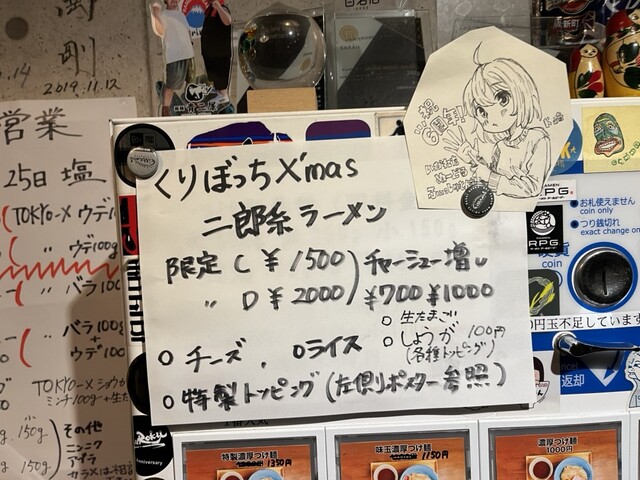 2019.11.12
営業
25日 塩
TOKYO-X ウデ
〃 ウデ100g
〃 バラ10
〃 バラ100g
+
ウデ100
TOKYO-X ショウガ
ミンチ100g+生
150g
150g
その他
ニンニク
アブラ
くりぼっちX'mas
二郎系ラーメン
限定 C ¥1500
〃 D ¥2000
チャーシュー増し
¥700 ¥1000
○ 生たまご
○ しょうが 100円
(各種トッピング)
○ チーズ、○ライス
○ 特製トッピング(左側ポスター参照)
祝
6周年!!
RPG
RPG
●お札使えません
coin only
●つり銭切れ
exact change on
硬貨
coin
円玉不足しています
返却
Anniversary
特製濃厚つけ麺
1350円
味玉濃厚つけ麺
1150円
濃厚つけ麺
1000円